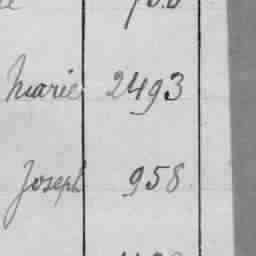 Marie 2493
Joseph 958